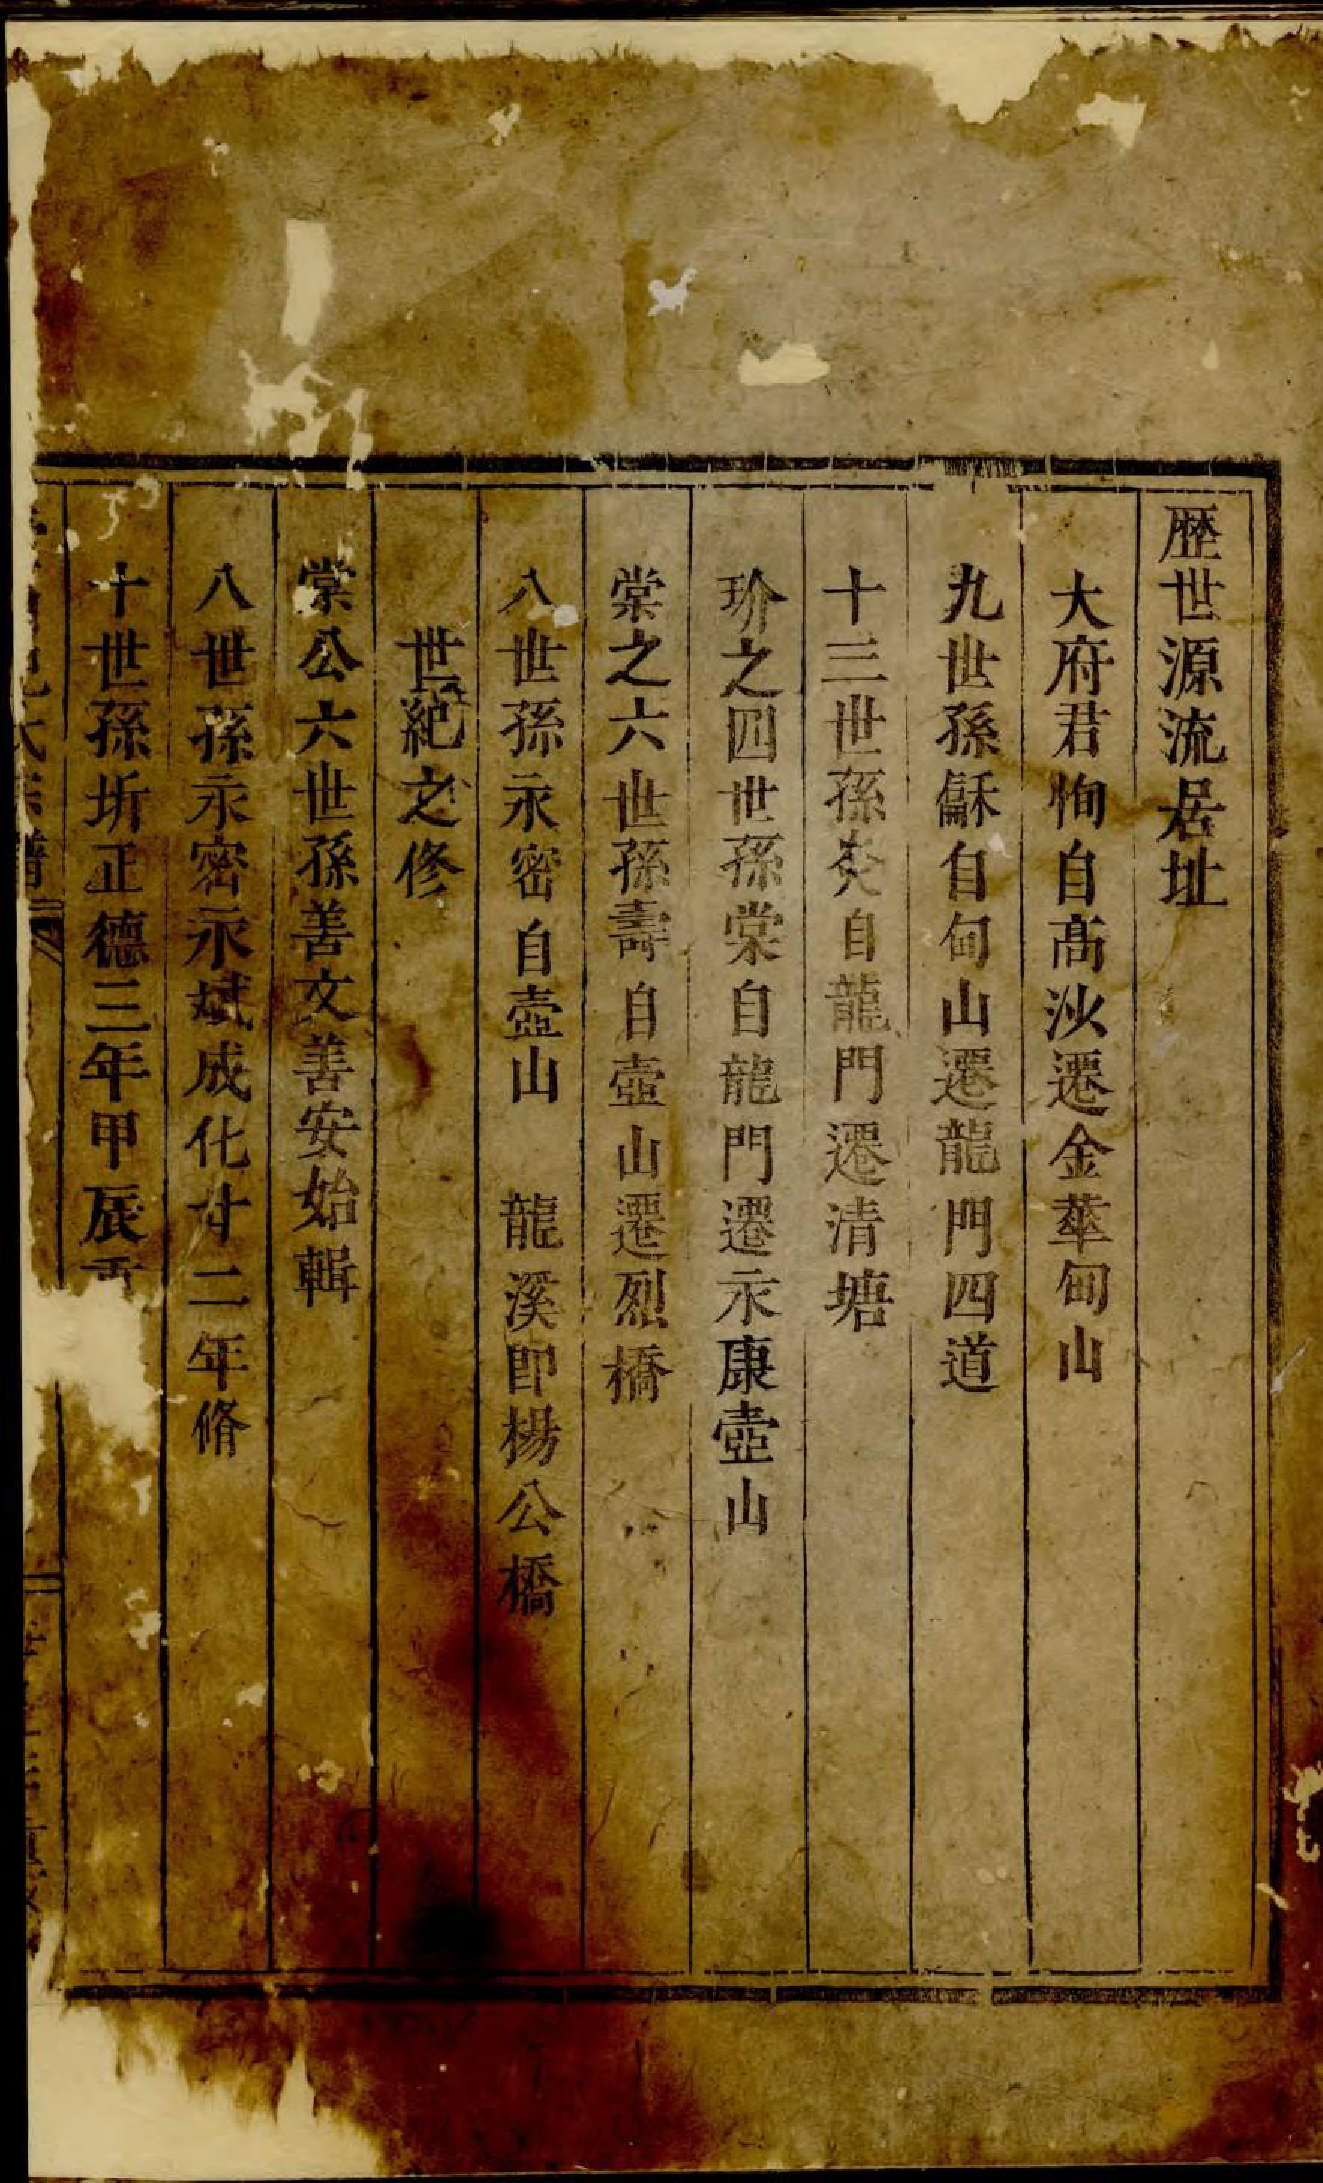 歷世源流居址
大府君恂自髙沙遷金華甸山
九世孫龢自甸山遷龍門四道
十三世孫炎自龍門遷清塘
玠之四世孫棠自龍門遷永康壺山
棠之六世孫壽自壺山遷烈橋
八世孫永密自壺山 龍溪即楊公橋
世紀之修
棠公六世孫善文善安始輯
八世孫永密永斌成化廿二年脩
十世孫圻正德三年甲辰重